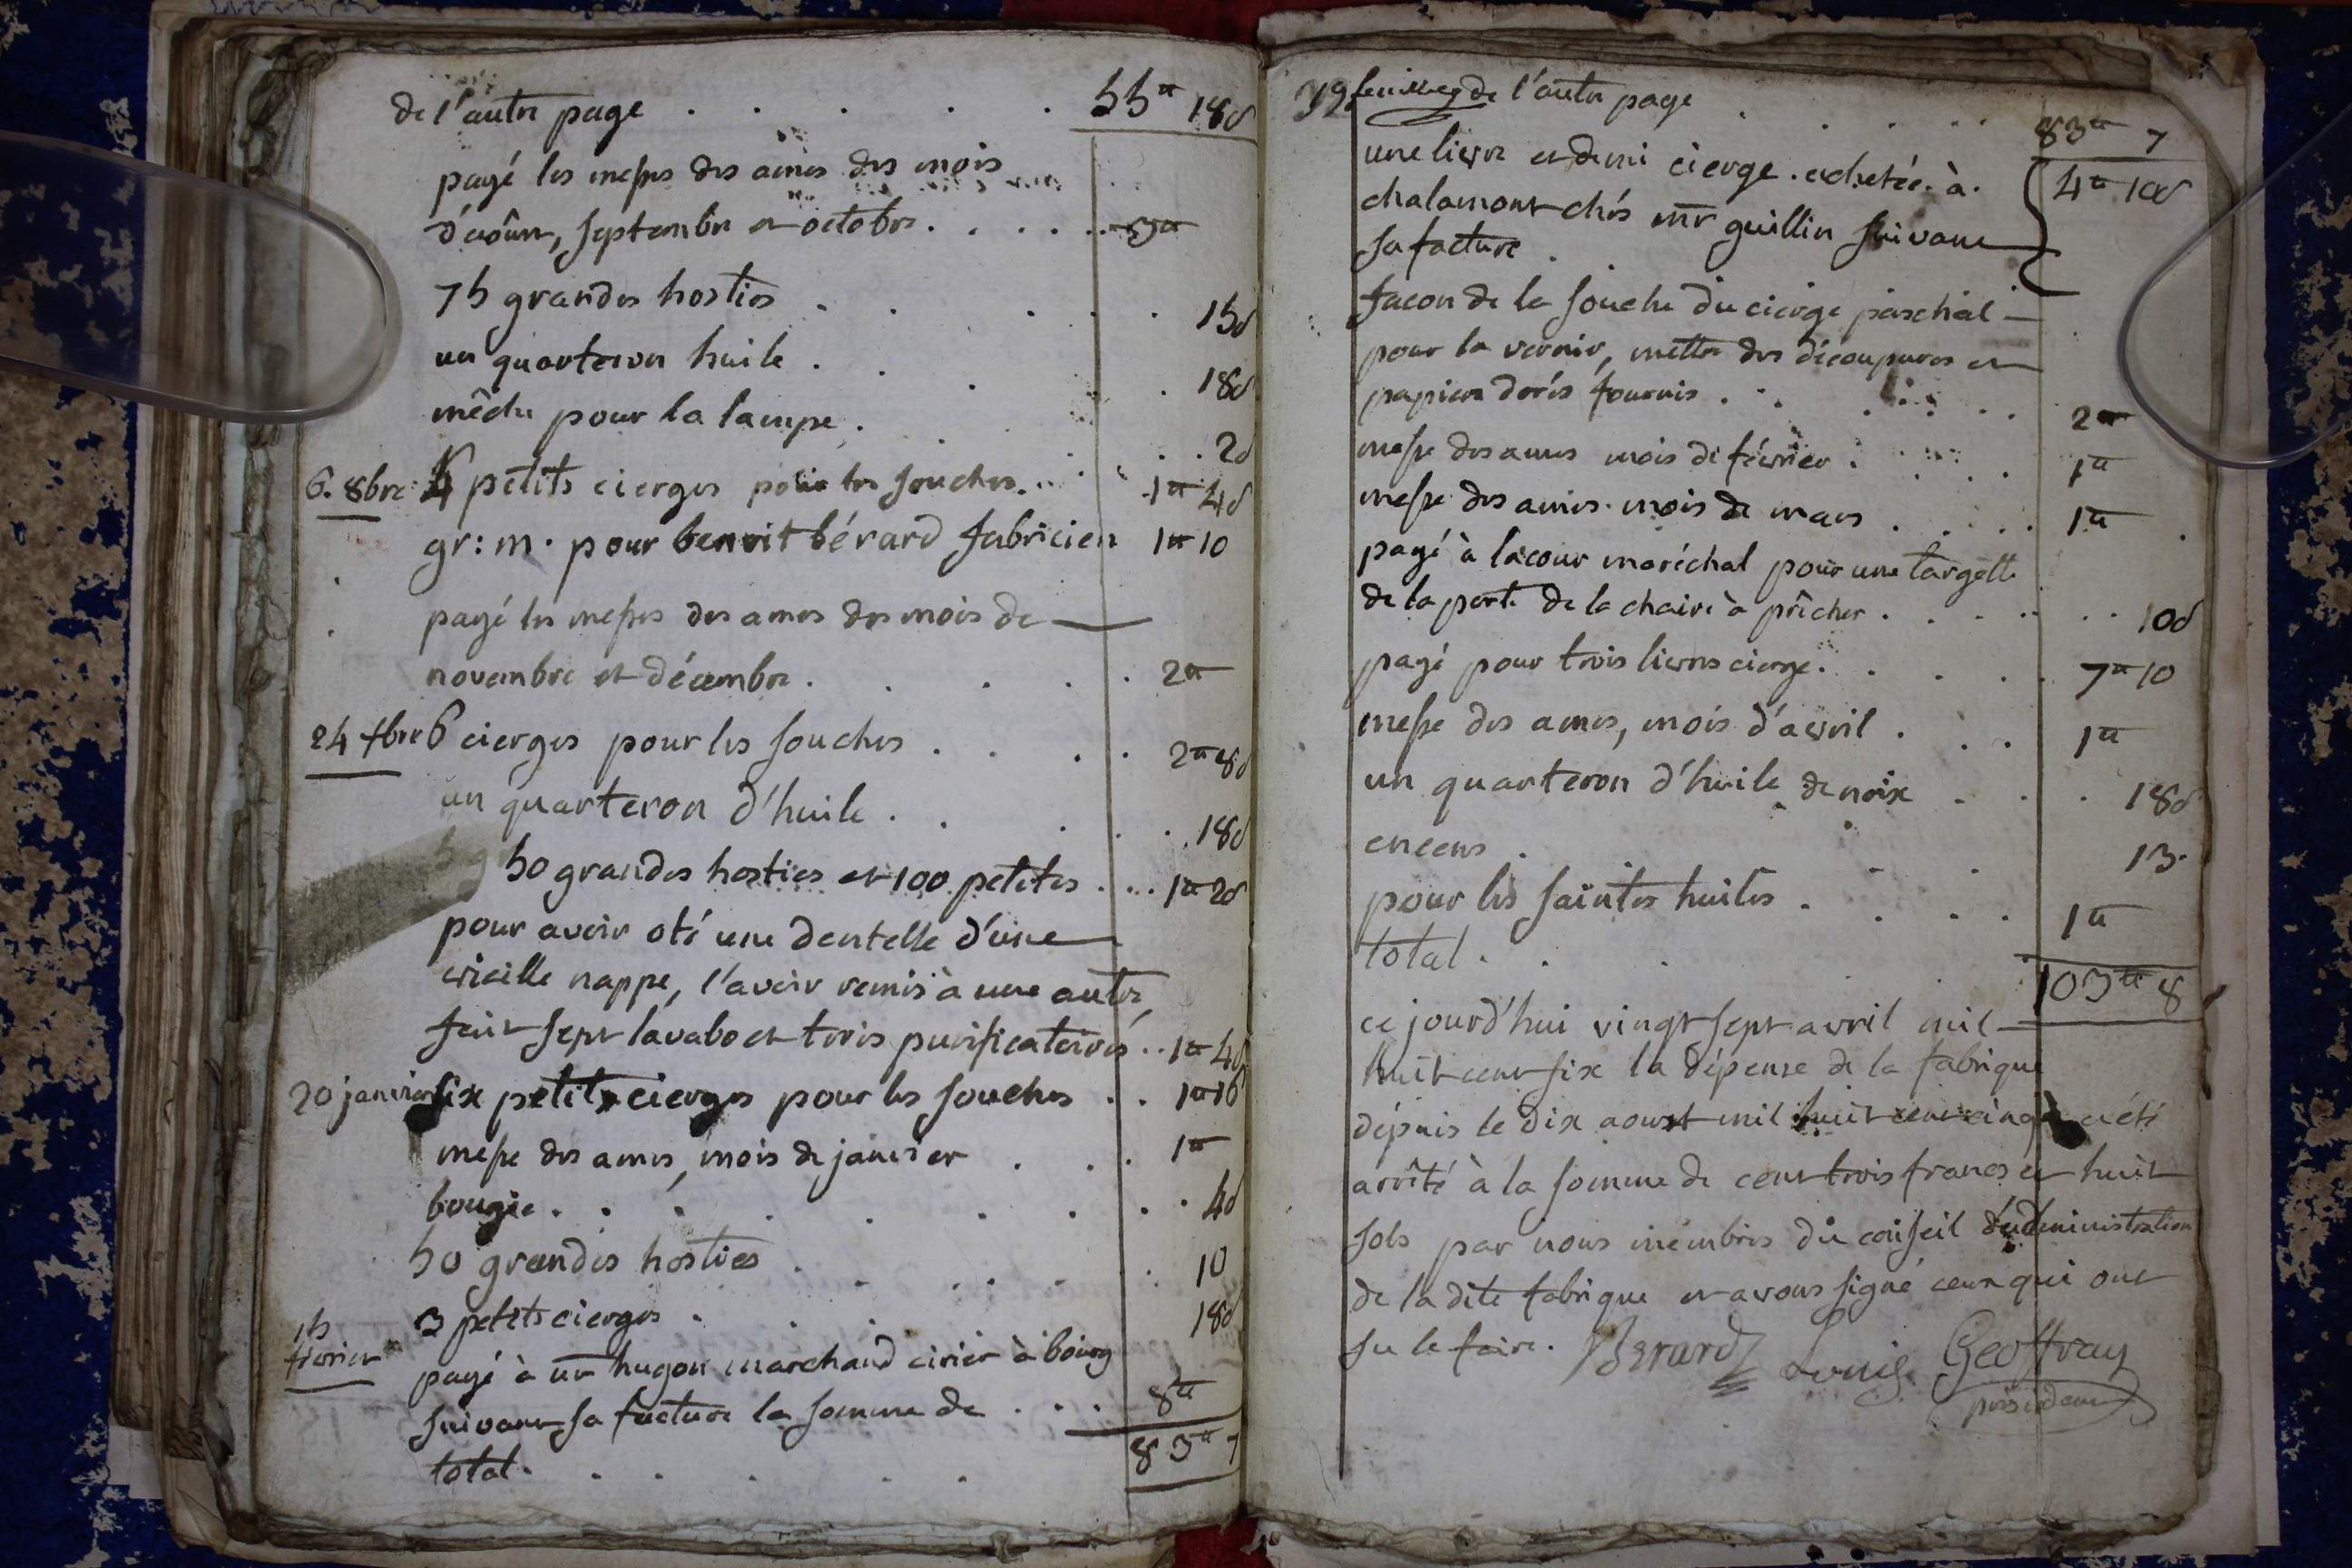 de l'autre page . . . . . . 55tt 18s
payé les messes des ames des mois
d'août, septembre et octobre . . . . . 3tt
75 grandes hosties . . . . . 15s
un quarteron huile . . . . 18s
mêche pour la lampe . . . . . 2s
6. 8bre 4 petits cierges pour les souches . . . 1tt 4s
gr: m. pour benoit bérard fabricien 1tt 10
payé les messes des ames des mois de —
novembre et décembre . . . . . 2tt
24 xbre 6 cierges pour les souches . . . . 2tt 8s
un quarteron d'huile . . . . . 18s
50 grandes hosties et 100 petites . . . 1tt 2s
pour avoir oté une dentelle d'une
vieille nappe, l'avoir remis à une autre,
fait sept lavabo et trois purificatoires . . 1tt 4s
20 janvier six petits cierges pour les souches . . 1tt 16
messe des ames, mois de janvier . . . 1tt
bougie . . . . . . . . 4s
50 grandes hosties . . . . . 10
3 petits cierges . . . . 18s
15
février
payé à mr hugon marchand cirier à bourg
suivant sa facture la somme de . . . 8tt
total . . . . . . 83tt 7
feuillet de l'autre page . . . . . 83tt 7
une livre et demi cierge. achetée. à.
chalamont chés mr guillin suivant
sa facture . 4tt 10s
facon de la souche du cierge paschal —
pour la vernir, mettre des découpures et
papiers dorés fournis . . . . . 2tt
messe des ames mois de février . . . 1tt
messe des ames. mois de mars . . . . 1tt
payé à lacour maréchal pour une targette
de la porte de la chaire à prêcher . . . . . . 10s
payé pour trois livres cierge . . . . . 7tt 10
messe des ames, mois d'avril . . . 1tt
un quarteron d'huile de noix . . . 18s
encens . . . 13.
pour les saintes huiles . . . . 1tt
total . . . . 103tt 8
ce jourd'hui vingt sept avril mil —
huit cent six la dépense de la fabrique
dépuis le dix aoust mil huit cent cinq a été
arrêté à la somme de cent trois francs et huit
sols par nous membres du conseil d'administration
de la dite fabrique et avons signé ceux qui ont
su le faire. Berard Louis Geoffray
président